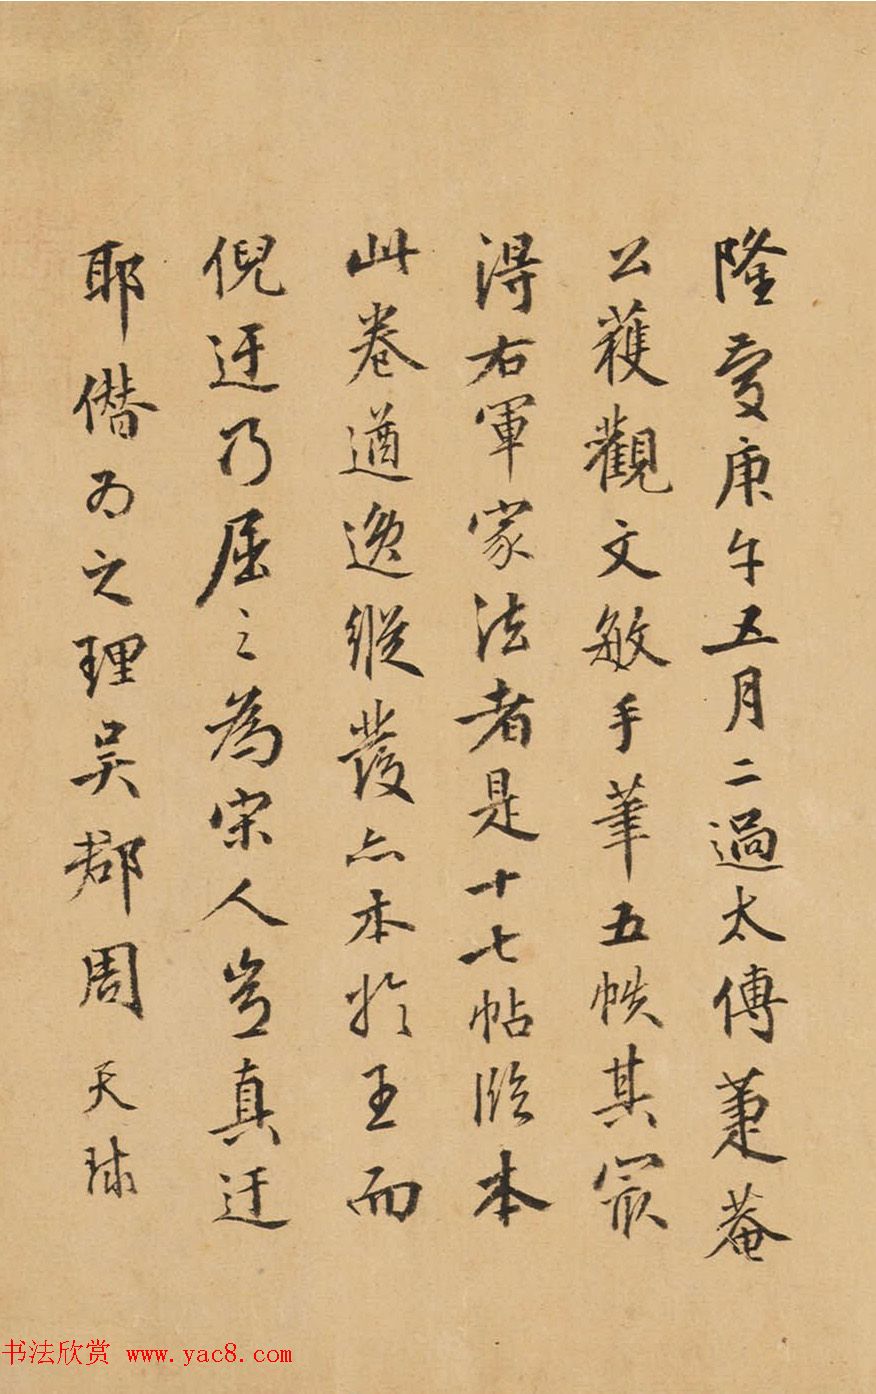 隆慶庚午五月二過太傅萐菴
公䕶觀文敏手筆五帙其冣
得右軍家法者是十七帖臨本
此卷遒逸縱發亦本於王而
倪迂乃屈之為宋人豈真迂
耶偺為之理吳郡周天球
书法欣赏 www.yac8.com